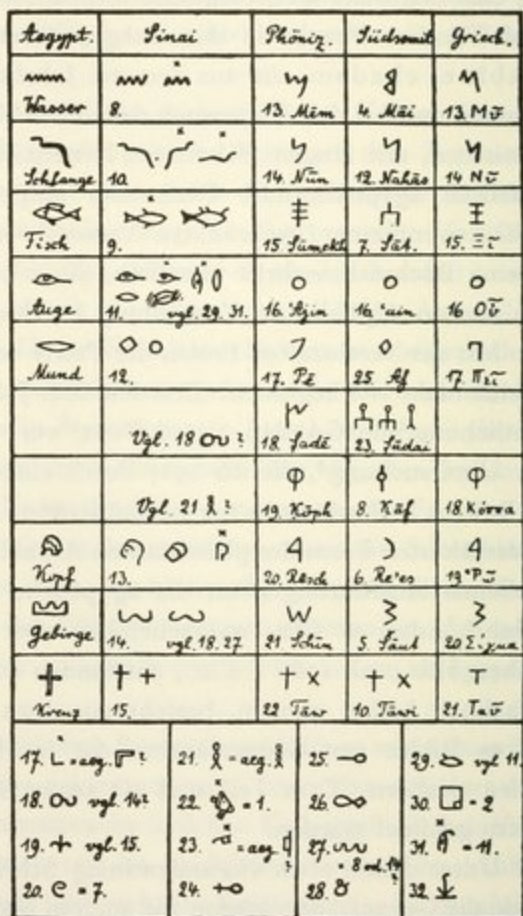 Aegypt. Sinai Phöniz. Südsemit. Griech.
Wasser 8. 13. Mēm 4. Māi 13. Mῦ
Schlange 10. 14. Nūn 12. Nahās 14. Nῦ
Fisch 9. 15. Sāmekh 7. Sāt. 15. Ξῖ
Auge 11. vgl. 29. 31. 16. Ajin 16. 'ain 16. Οὖ
Mund 12. 17. Pē 25. Af 17. Πεῖ
Vgl. 18 ? 18. Sadē 23. Sādai
Vgl. 21 ? 19. Kōph 8. Kāf 18. Κόππα
Kopf 13. 20. Resch 6. Re'es 19. Ῥῶ
Gebirge 14. vgl. 18. 27 21. Schin 5. Saut 20. Σίγμα
Kreuz 15. 22. Tāw 10. Tāwi 21. Ταῦ
17. = aeg. ? 21. = aeg. 25. 29. vgl. 11.
18. vgl. 14? 22. = 1. 26. 30. = 2
19. vgl. 15. 23. = aeg. ? 27. = 8 od. 14? 31. = 11.
20. = 7. 24. 28. 32.